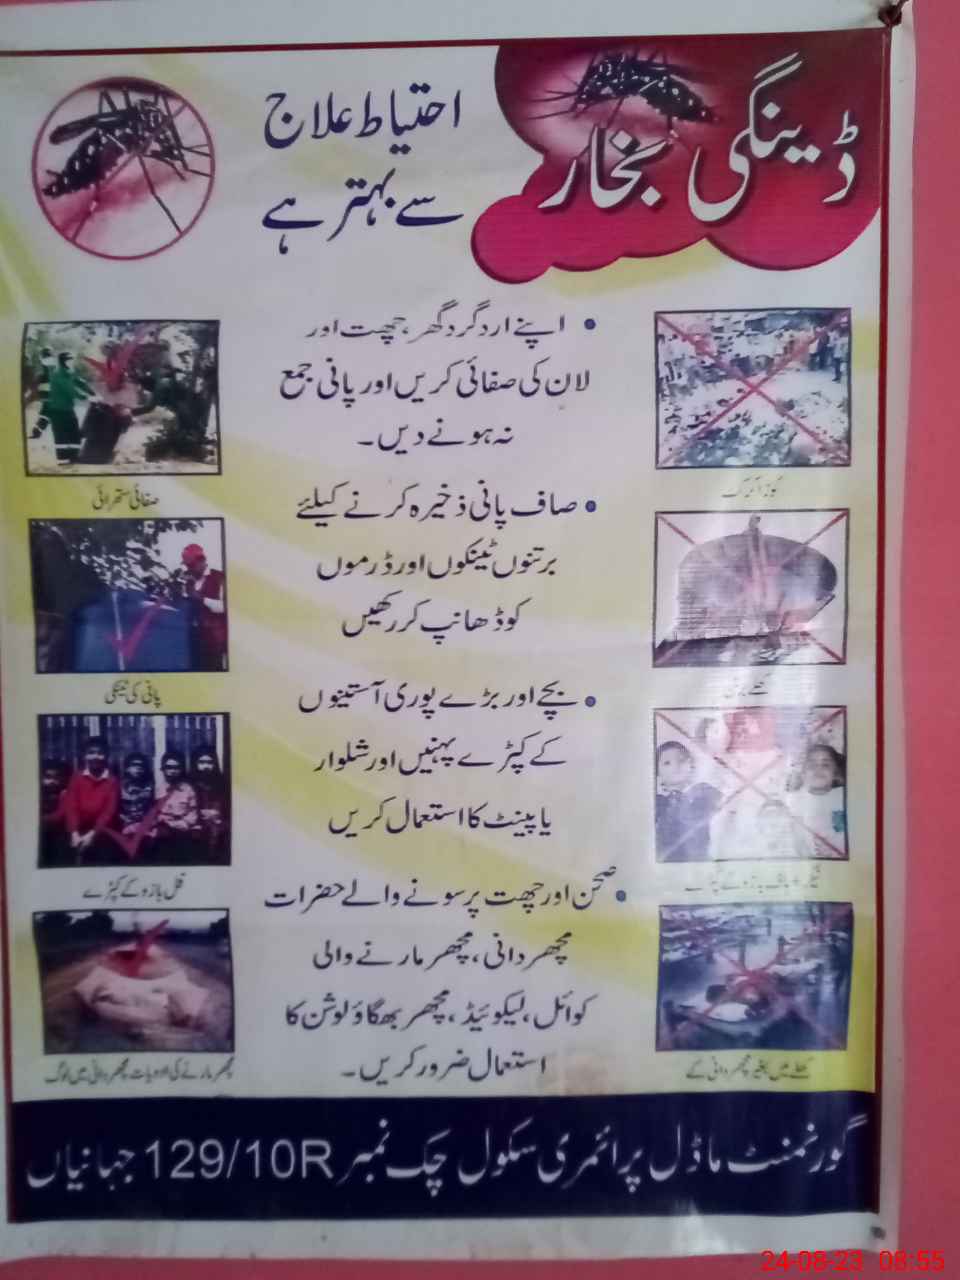 ڈینگی بخار
احتیاط علاج
سے بہتر ہے
• اپنے اردگرد گھر، چھت اور
لان کی صفائی کریں اور پانی جمع
نہ ہونے دیں۔
• صاف پانی ذخیرہ کرنے کیلئے
برتنوں ٹینکوں اور ڈرموں
کو ڈھانپ کر رکھیں
• بچے اور بڑے پوری آستینوں
کے کپڑے پہنیں اور شلوار
یا پینٹ کا استعمال کریں
• صحن اور چھت پر سونے والے حضرات
مچھر دانی، مچھر مارنے والی
کوائل، لیکوئیڈ، مچھر بھگاؤ لوشن کا
استعمال ضرور کریں۔
صفائی ستھرائی
پانی کی ٹینکی
فل بازو کے کپڑے
مچھر مارنے کی ادویات مچھر دانی میں لوگ
کھلے میں بغیر مچھر دانی کے
گورنمنٹ ماڈل پرائمری سکول چک نمبر 129/10R جہانیاں
24-08-23 08:55